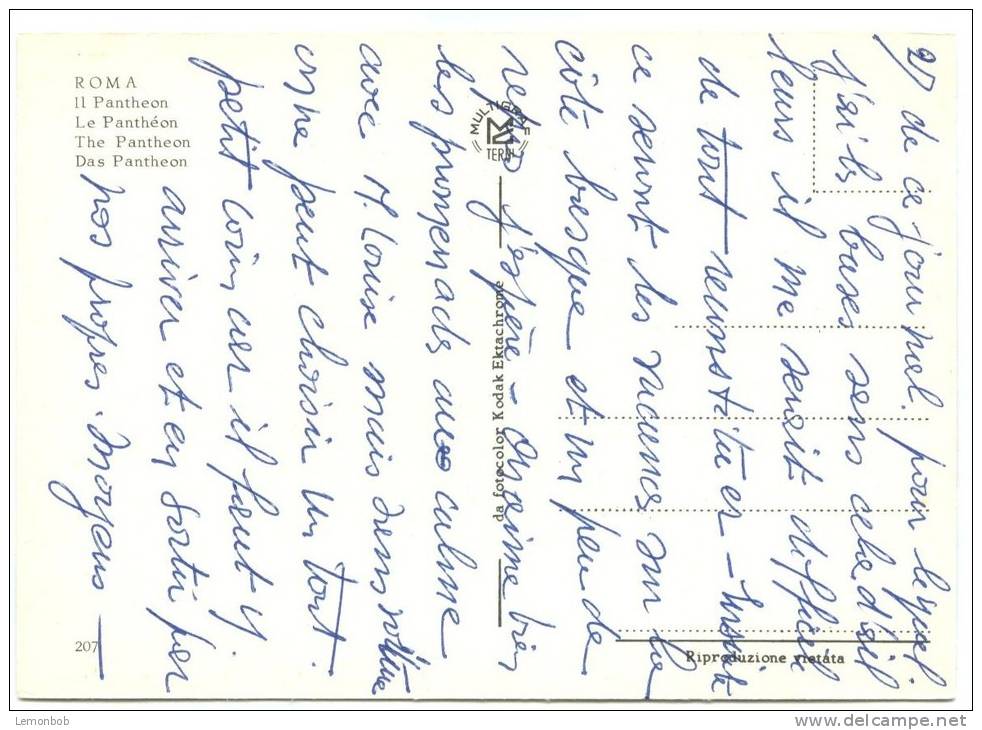 ROMA
Il Pantheon
Le Panthéon
The Pantheon
Das Pantheon
MULTIGRAF
TERNI
da fotocolor Kodak Ektachrome
Riproduzione vietata
207
2) de ce journal. pour lequel
j'ai les bases sans cela d'ail
leurs il me serait difficile
de tout reconstituer - Ensuite
ce seront les vacances sur la
côte basque et un peu de
repos j'espère - On aime bien
les promenades au calme
avec M. Louise mais dans notre
on ne peut choisir un tout
petit coin car il faut y
arriver et en sortir par
nos propres moyens
Lemonbob
www.delcampe.net